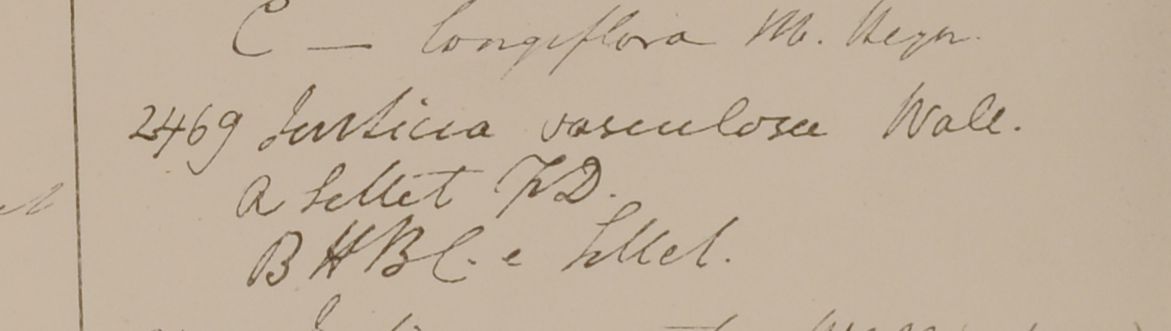 C — longiflora M. Heyn.
2469 Justicia vasculosa Wall.
a Sillet F D.
B H B C. e Sillet.